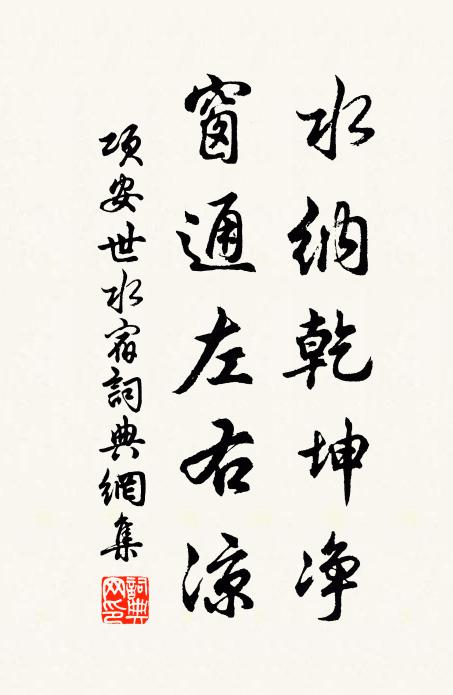 水納乾坤净
窗通左右涼
項安世水宿詞典網集
詞典网印